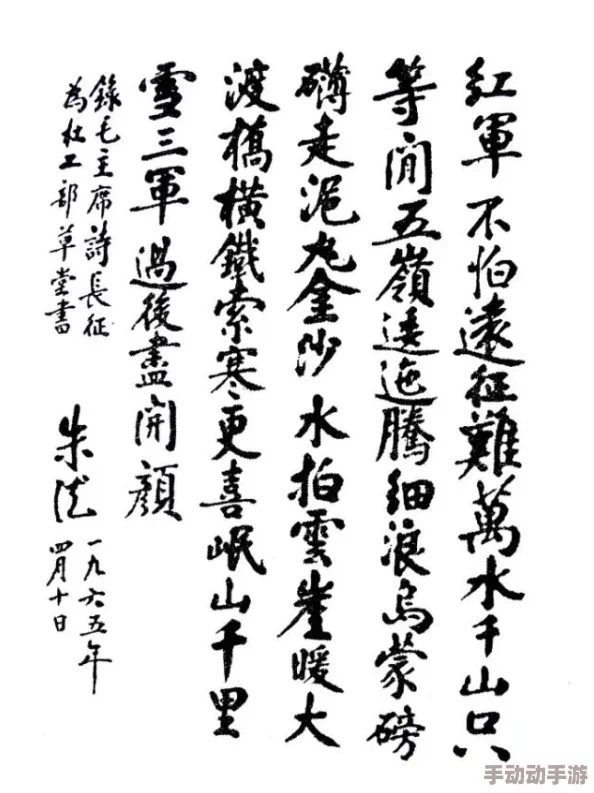 紅軍不怕遠征難萬水千山只
等閒五嶺逶迤騰細浪烏蒙磅
礴走泥丸金沙水拍雲崖暖大
渡橋橫鐵索寒更喜岷山千里
雪三軍過後盡開顏
錄毛主席詩長征
為杜工部草堂書
朱德
一九六五年
四月十日
手动动手游